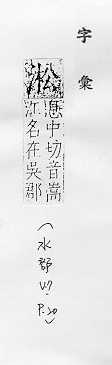 字彙
淞
思中切音嵩
江名在吳郡
(水部巳、P.20)